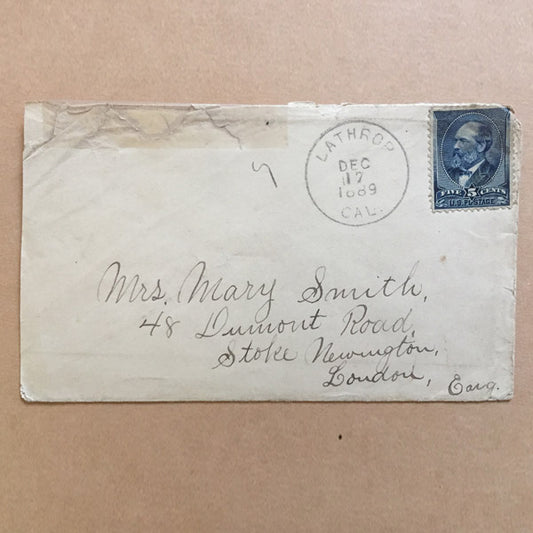 LATHROP
DEC
17
1889
CAL.
FIVE 5 CENTS
U.S. POSTAGE
Mrs. Mary Smith,
48 Dumont Road,
Stoke Newington,
London, Eng.